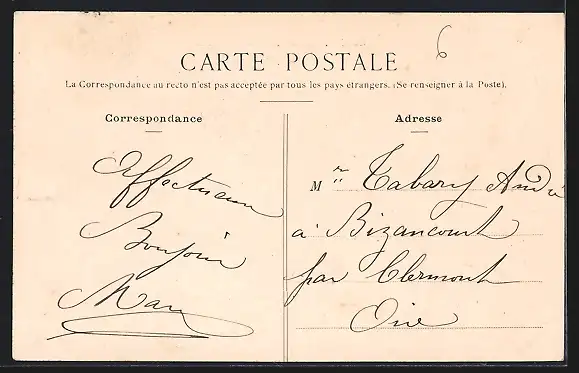 6
CARTE POSTALE
La Correspondance au recto n'est pas acceptée par tous les pays étrangers. (Se renseigner à la Poste).
Correspondance
Affectueux
Bonjour
Adresse
M r Tabary André
à Bizancourt
par Clermont
Oise